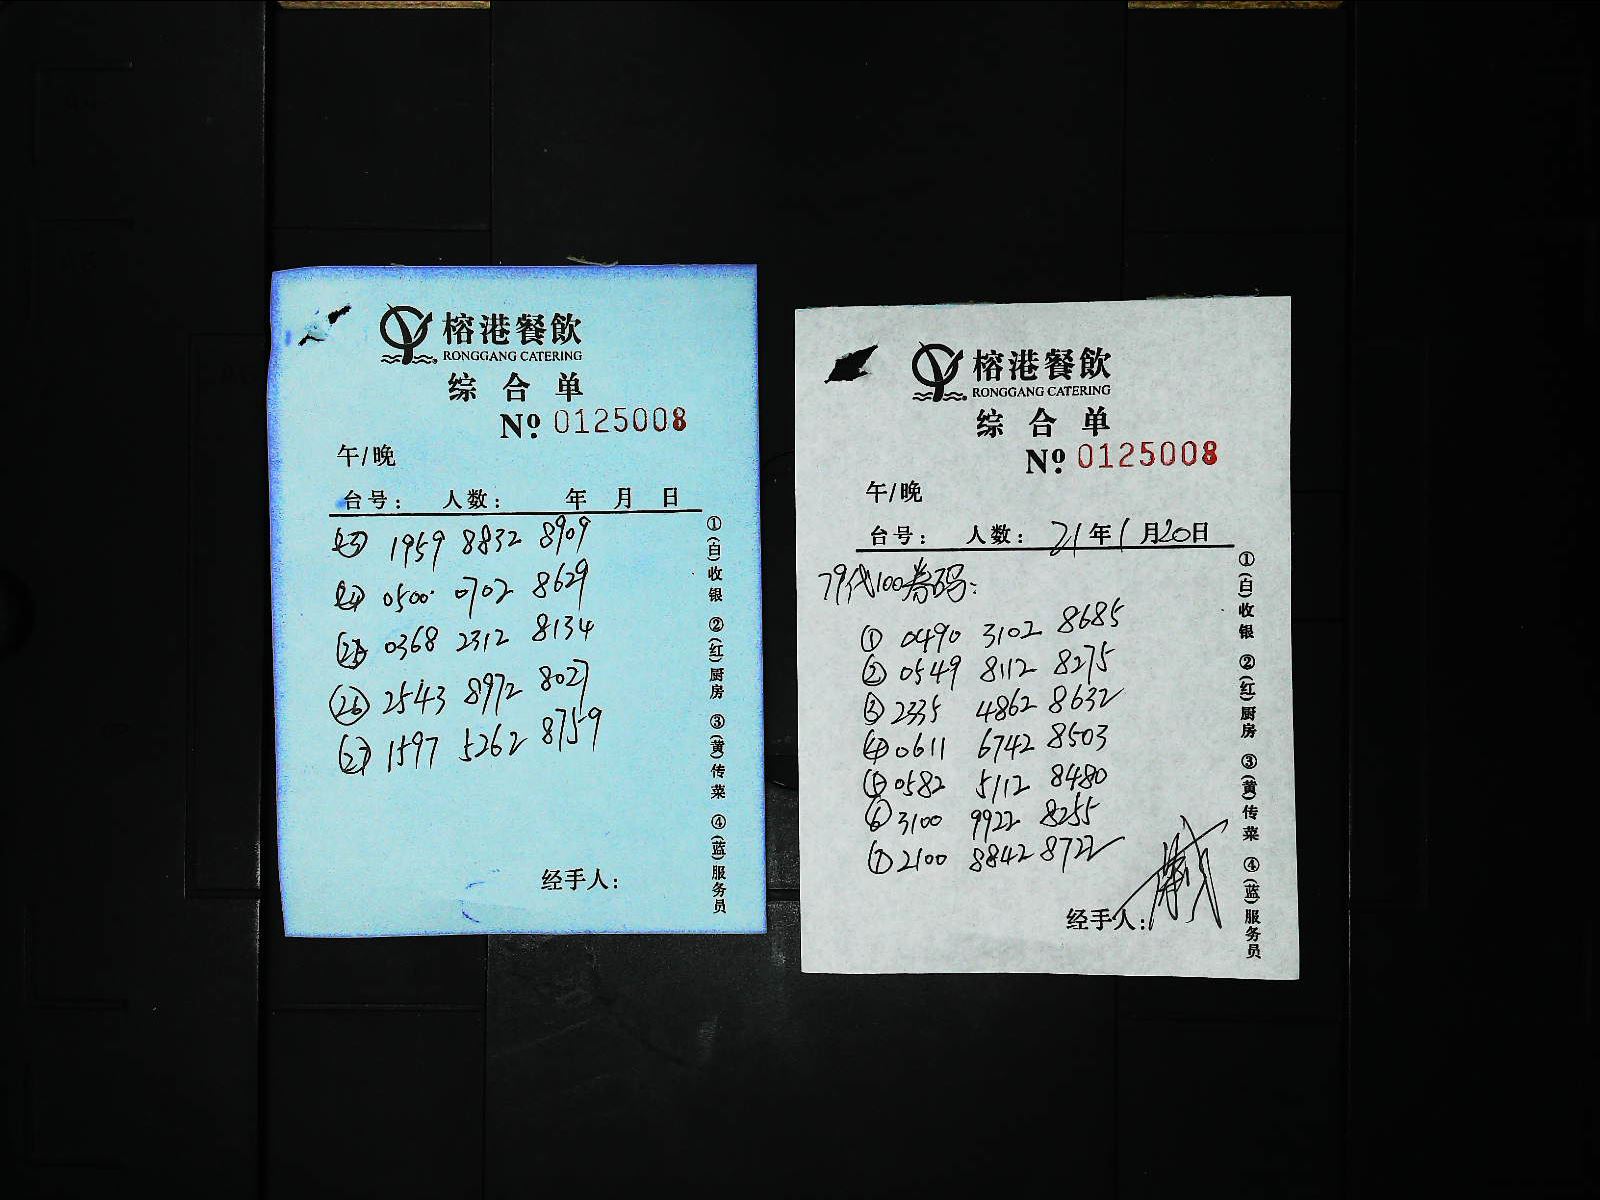 榕港餐飲
RONGGANG CATERING
综合单
Nº 0125008
午/晚
台号： 人数： 年 月 日
㉓ 1959 8832 8909
㉔ 0500 0702 8629
㉕ 0368 2312 8134
㉖ 2543 8972 8027
㉗ 1597 5262 8759
经手人：
①(白)收银 ②(红)厨房 ③(黄)传菜 ④(蓝)服务员
榕港餐飲
RONGGANG CATERING
综合单
Nº 0125008
午/晚
台号： 人数： 21年1月20日
79代100券码：
① 0490 3102 8685
② 0549 8112 8275
③ 2335 4862 8632
④ 0611 6742 8503
⑤ 0582 5112 8480
⑥ 3100 9922 8255
⑦ 2100 8842 8722
经手人：
①(白)收银 ②(红)厨房 ③(黄)传菜 ④(蓝)服务员